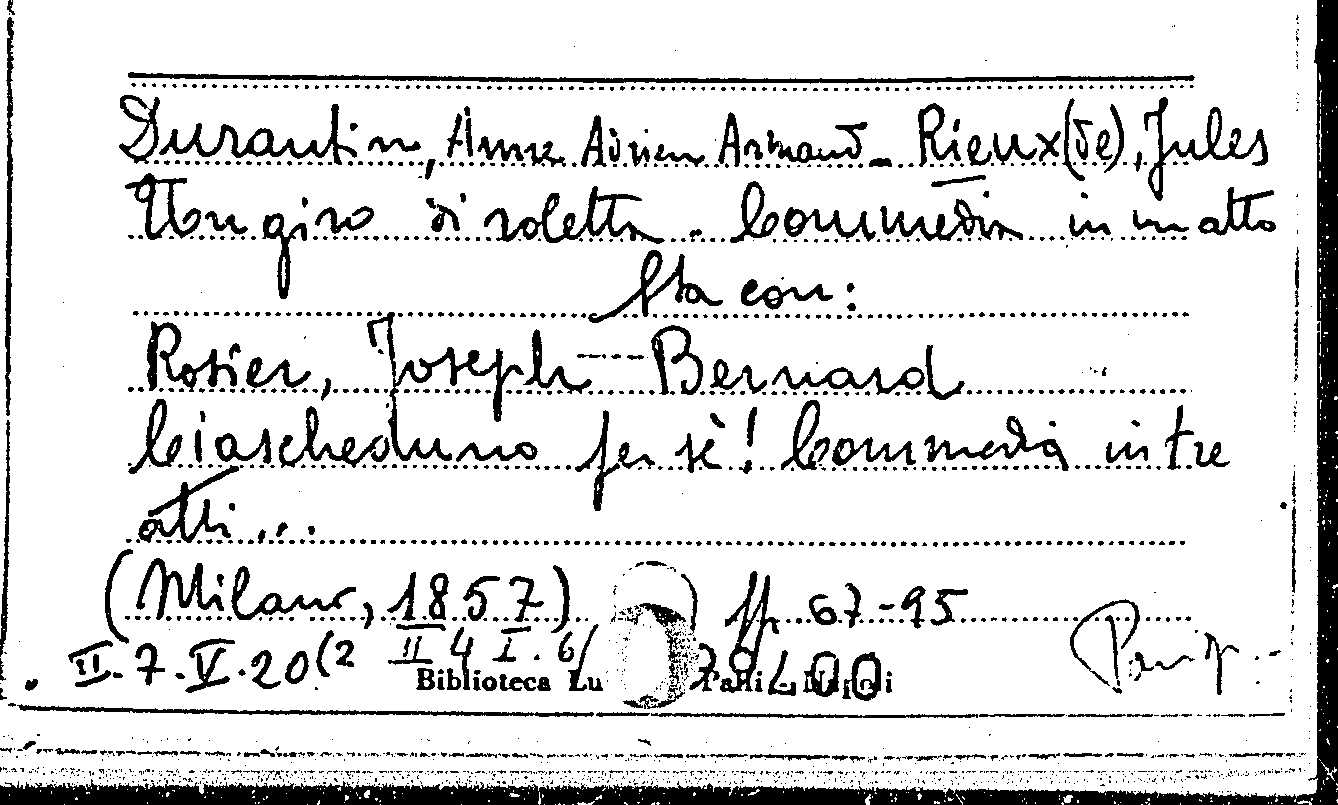 Durantin, Anne Adrien Armand - Rieux (de), Jules
Un giro di roletta - Commedia in un atto
Sta con:
Rosier, Joseph - Bernard
Ciascheduno per sè! Commedia in tre
atti...
(Milano, 1857) pp. 67-95
II. 7. V. 20(2 II 4 I. 6/
Biblioteca Lu